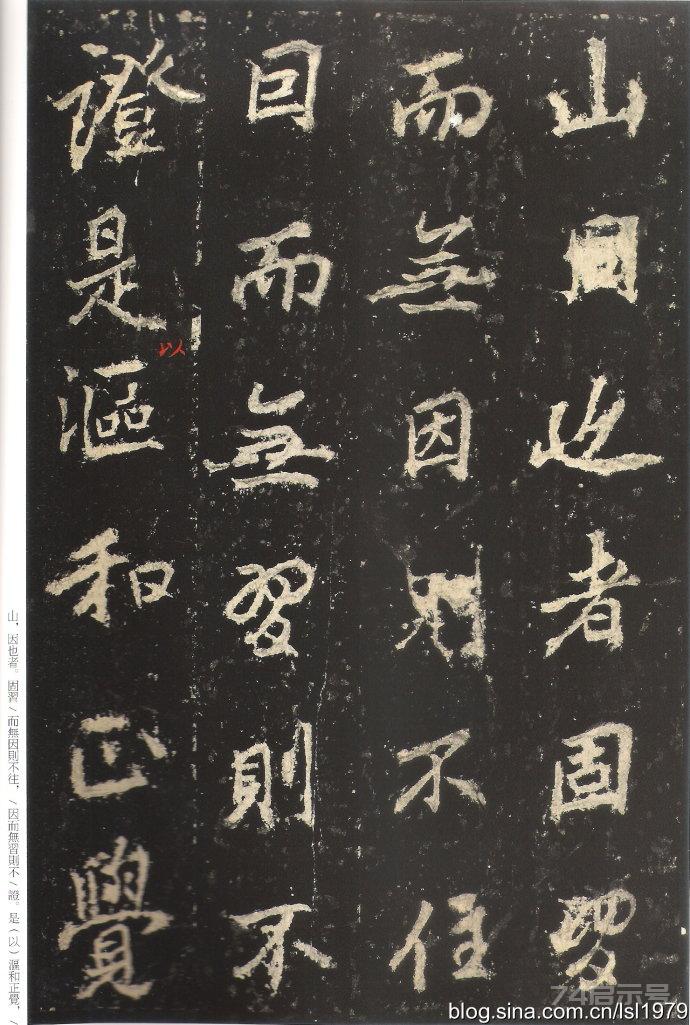 山因也者固習
而無因則不往
因而無習則不
證是以漚和正覺
山，因也者。固習/而無因則不往，/因而無習則不/證。是（以）漚和正覺，/
74启示号
blog.sina.com.cn/lsl1979